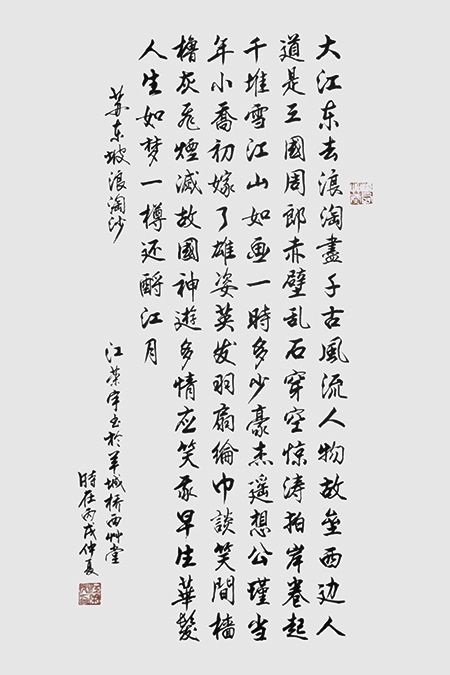 大江东去浪淘盡千古風流人物故垒西边人
道是三國周郎赤壁乱石穿空惊涛拍岸卷起
千堆雪江山如画一時多少豪杰遥想公瑾当
年小喬初嫁了雄姿英发羽扇綸巾談笑間檣
櫓灰飞煙滅故國神遊多情应笑我早生華髮
人生如梦一樽还酹江月
苏东坡浪淘沙
江荣宇书於羊城桥西艸堂
時在丙戌仲夏